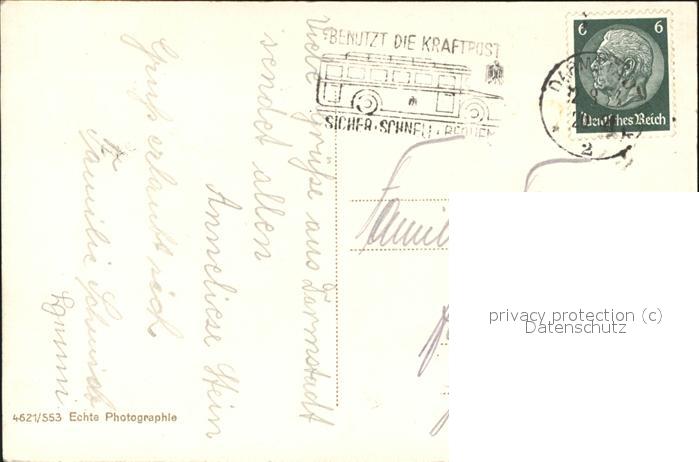 BENUTZT DIE KRAFTPOST
SICHER · SCHNELL · BEQUEM
6 6
Deutsches Reich
DARM
2
Viele Grüße aus Darmstadt
sendet allen
Anneliese Stein
Gruß erlaubt sich
Familie
Famil
privacy protection (c)
Datenschutz
4621/553 Echte Photographie